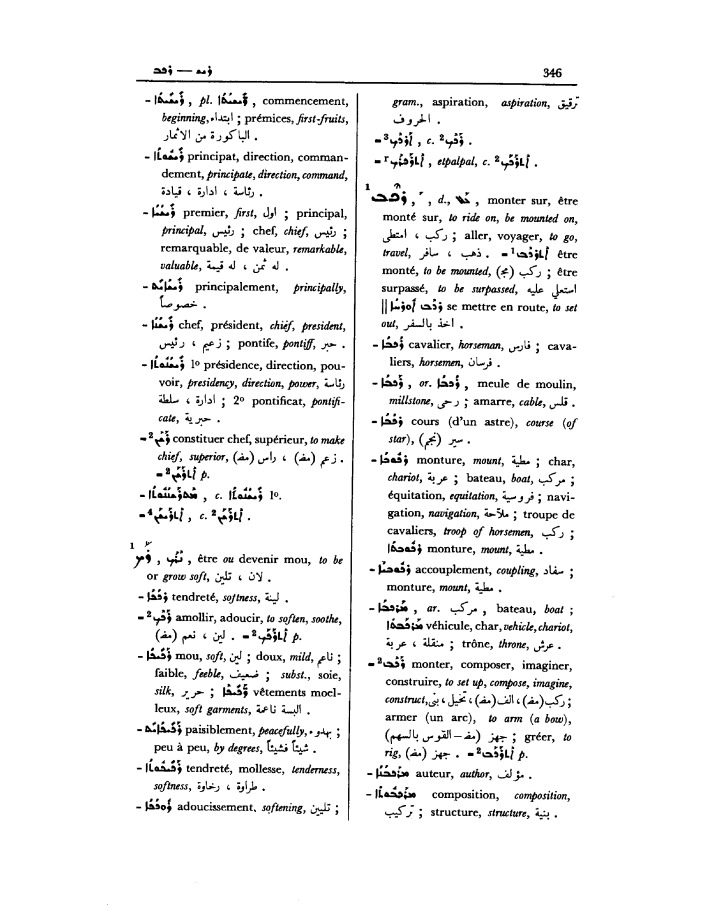 346
- ܪܫܝܬܐ , pl. , commencement,
beginning, ابتداء ; prémices, first-fruits,
الباكورة من الاثمار .
- principat, direction, comman-
dement, principate, direction, command,
رئاسة ، ادارة ، قيادة .
- premier, first, اول ; principal,
principal, رئيس ; chef, chief, رئيس ;
remarquable, de valeur, remarkable,
valuable, له ثمن ، له قيمة .
- principalement, principally,
خصوصاً .
- ܪܫܢܐ chef, président, chief, president,
زعيم ، رئيس ; pontife, pontiff, حبر .
- ܪܫܢܘܬܐ 1º présidence, direction, pou-
voir, presidency, direction, power, رئاسة
ادارة ، سلطة ; 2º pontificat, pontifi-
cate, حبرية .
- 2 constituer chef, supérieur, to make
chief, superior, زعم (مض) ، راس (مض) .
- 2 p.
- , c. 1º.
- 4 , c. 2 .
1 ܪܟ , , être ou devenir mou, to be
or grow soft, لان ، تلين .
- tendreté, softness, لينة .
- 2 ܪܟܟ amollir, adoucir, to soften, soothe,
لين ، نعم (مض) . - 2 ܐܬܪܟܟ p.
- ܪܟܝܟܐ mou, soft, لين ; doux, mild, ناعم ;
faible, feeble, ضعيف ; subst., soie,
silk, حرير ; vêtements moel-
leux, soft garments, البسة ناعمة .
- ܪܟܝܟܐܝܬ paisiblement, peacefully, بهدوء ;
peu à peu, by degrees, شيئاً فشيئاً .
- ܪܟܝܟܘܬܐ tendreté, mollesse, tenderness,
softness, طراوة ، رخاوة .
- ܪܘܟܟܐ adoucissement, softening, تليين ;
gram., aspiration, aspiration, ترقيق
الحروف .
- 3 , c. 2 ܪܟܟ .
- r , etpalpal, c. 2 ܐܬܪܟܟ .
1 ܪܟܒ , , d., ܥܠ , monter sur, être
monté sur, to ride on, be mounted on,
ركب ، امتطى ; aller, voyager, to go,
travel, ذهب ، سافر . - 1 ܐܬܪܟܒ être
monté, to be mounted, ركب (مج) ; être
surpassé, to be surpassed, استعلي عليه
|| ܪܟܒ ܐܘܪܚܐ se mettre en route, to set
out, اخذ بالسفر .
- ܪܟܒܐ cavalier, horseman, فارس ; cava-
liers, horsemen, فرسان .
- ܪܟܒܐ , or. ܪܟܒܐ , meule de moulin,
millstone, رحى ; amarre, cable, قلس .
- ܪܟܒܐ cours (d'un astre), course (of
star), سير (نجم) .
- ܪܟܘܒܐ monture, mount, مطية ; char,
chariot, عربة ; bateau, boat, مركب ;
équitation, equitation, فروسية ; navi-
gation, navigation, ملاحة ; troupe de
cavaliers, troop of horsemen, ركب ;
monture, mount, مطية .
- accouplement, coupling, سفاد ;
monture, mount, مطية .
- ܡܪܟܒܐ , ar. مركب , bateau, boat ;
ܡܪܟܒܬܐ véhicule, char, vehicle, chariot,
منقلة ، عربة ; trône, throne, عرش .
- 2 ܪܟܒ monter, composer, imaginer,
construire, to set up, compose, imagine,
construct, ركب(مض)، الف(مض)، تخيل ، بنى ;
armer (un arc), to arm (a bow),
جهز (مض - القوس بالسهم) ; gréer, to
rig, جهز (مض) . - 2 ܐܬܪܟܒ p.
- ܡܪܟܒܢܐ auteur, author, مؤلف .
- ܡܪܟܒܘܬܐ composition, composition,
تركيب ; structure, structure, بنية .